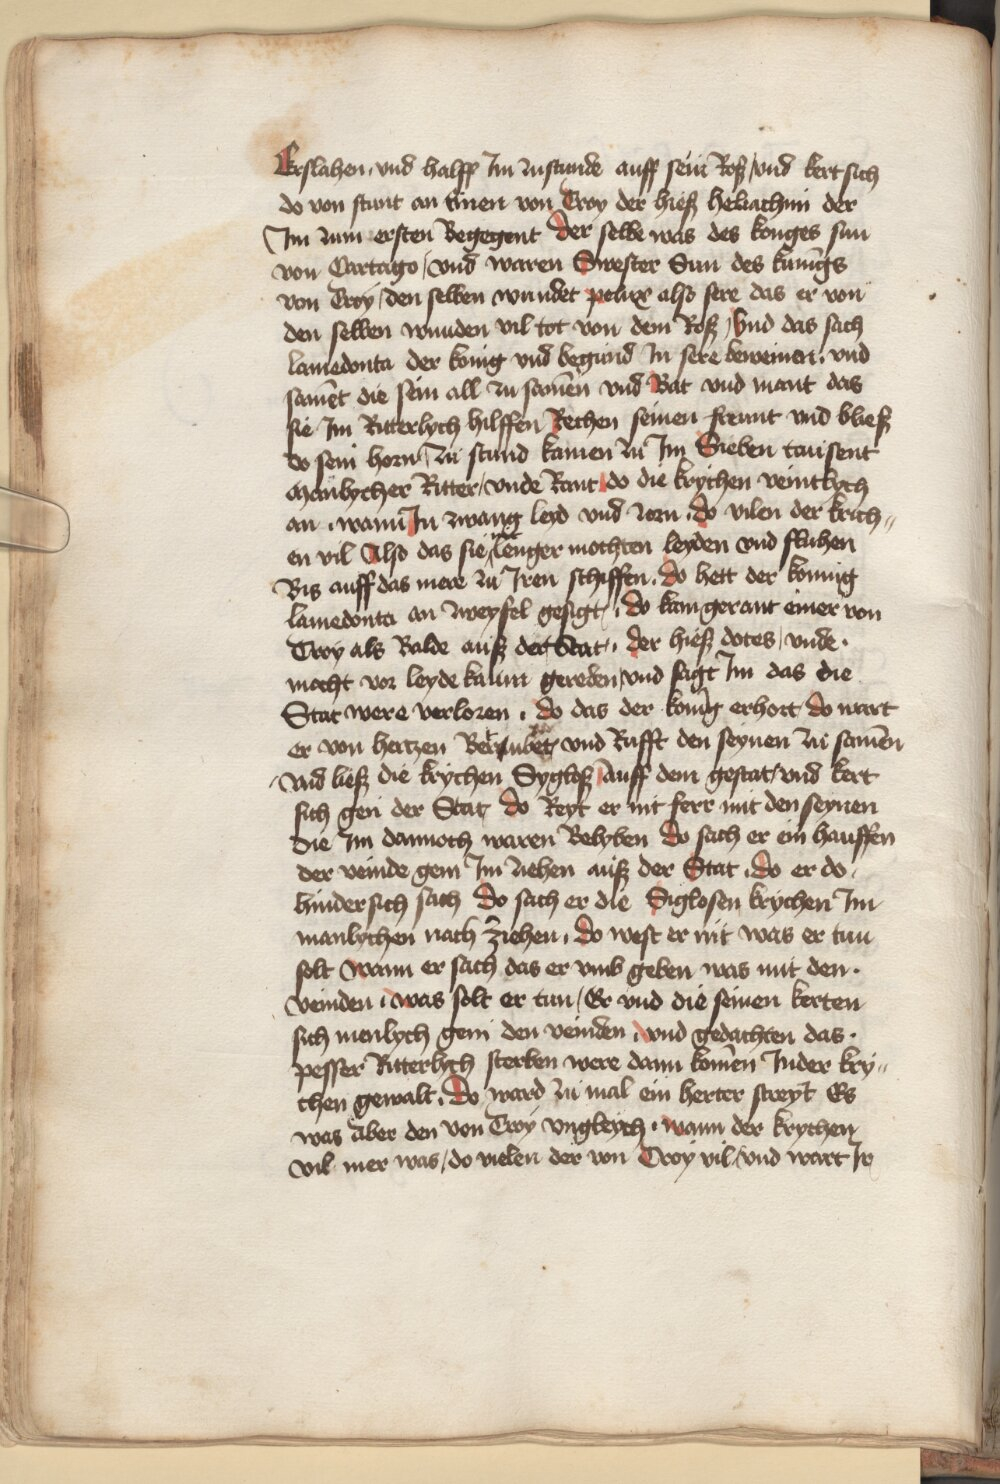 Erslahen, vnd halff Im zustunde auff sein Roß, vnd kert sich
do von stunt an einen von Troy der hieß heliachim der
Im zum ersten Begegent der selbe was des konges sun
von Cartago, vnd waren Swester Sun des kunīgs
von Troy, den selben wundet pelux also sere das er von
den selben wunden vil tot von dem Roß, Vnd das sach
lamedonta der konig vnd begund In sere beweinen, vnd
samēt die sein all zu samēn vnd Bat vnd mant das
sie Im Ritterlych hilffen Rechen seinen freunt vnd bließ
do sein horn, zu stund kamen zu Im Sieben tausent
manlycher Ritter, vnde Rant do die krychen veintlych
an, wann In zwang leyd vnd zorn, do vilen der krich„
en vil Also das sie nit lenger mochten leyden vnd fluhen
Bis auff das mere zu Iren schiffen, do hett der konnig
lamedonta an zweyfel gesigt, do kam gerant einer von
Troy als Balde auß der Stat, der hieß dotes, vnde
mocht vor leyde kaum gereden, vnd sagt Im das die
Stat were verloren, do das der konig erhort do wart
er von hertzen vnd Rufft den seynen zu samēn
vnd ließ die krychen Sygloß auff dem gestat, vnd kert
sich gen der Stat, do Reyt er nit ferr mit den seynen
die Im dannoch waren Belyben do sach er ein hauffen
der veinde gein Im ziehen auß der Stat, do er do
hinder sich sach do sach er die Siglosen krychen Im
manlychen nach ziehen, do west er nit was er tun
solt wann er sach das er vmb geben was mit den
veinden, was solt er tun, Er vnd die seinen kerten
sich menlych gein den veinden, vnd gedachten das
pesser Ritterlych sterben were dann komēn In der kry„
chen gewalt, do ward zu mal ein herter streyt Es
was aber den von Troy vngleych, wann der krychen
vil mer was, do vielen der von Troy vil, vnd wart Ir